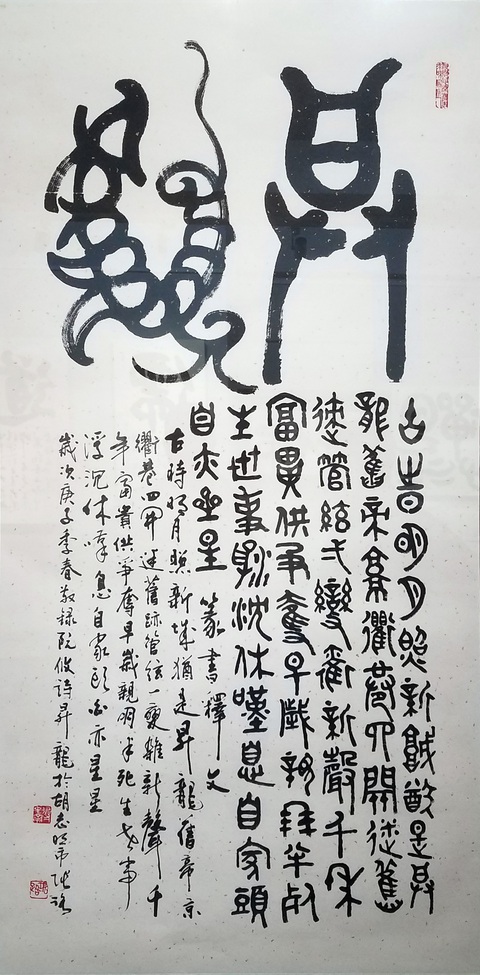 昇龍
古旹明月照新城猶是昇
龍舊帝京衢巷四開迷舊
迹管絃弌變雜新聲千年
富貴供爭奪早歲親朋半死
生世事浮沉休嘆息自家頭
白亦星星 篆書釋文
古時明月照新城猶是昇龍舊帝京
衢巷四開迷舊跡管絃一變雜新聲千
年富貴供爭奪早歲親朋半死生世事
浮沉休嘆息自家頭白亦星星
歲次庚子季春敬錄阮攸詩昇龍於胡志明市